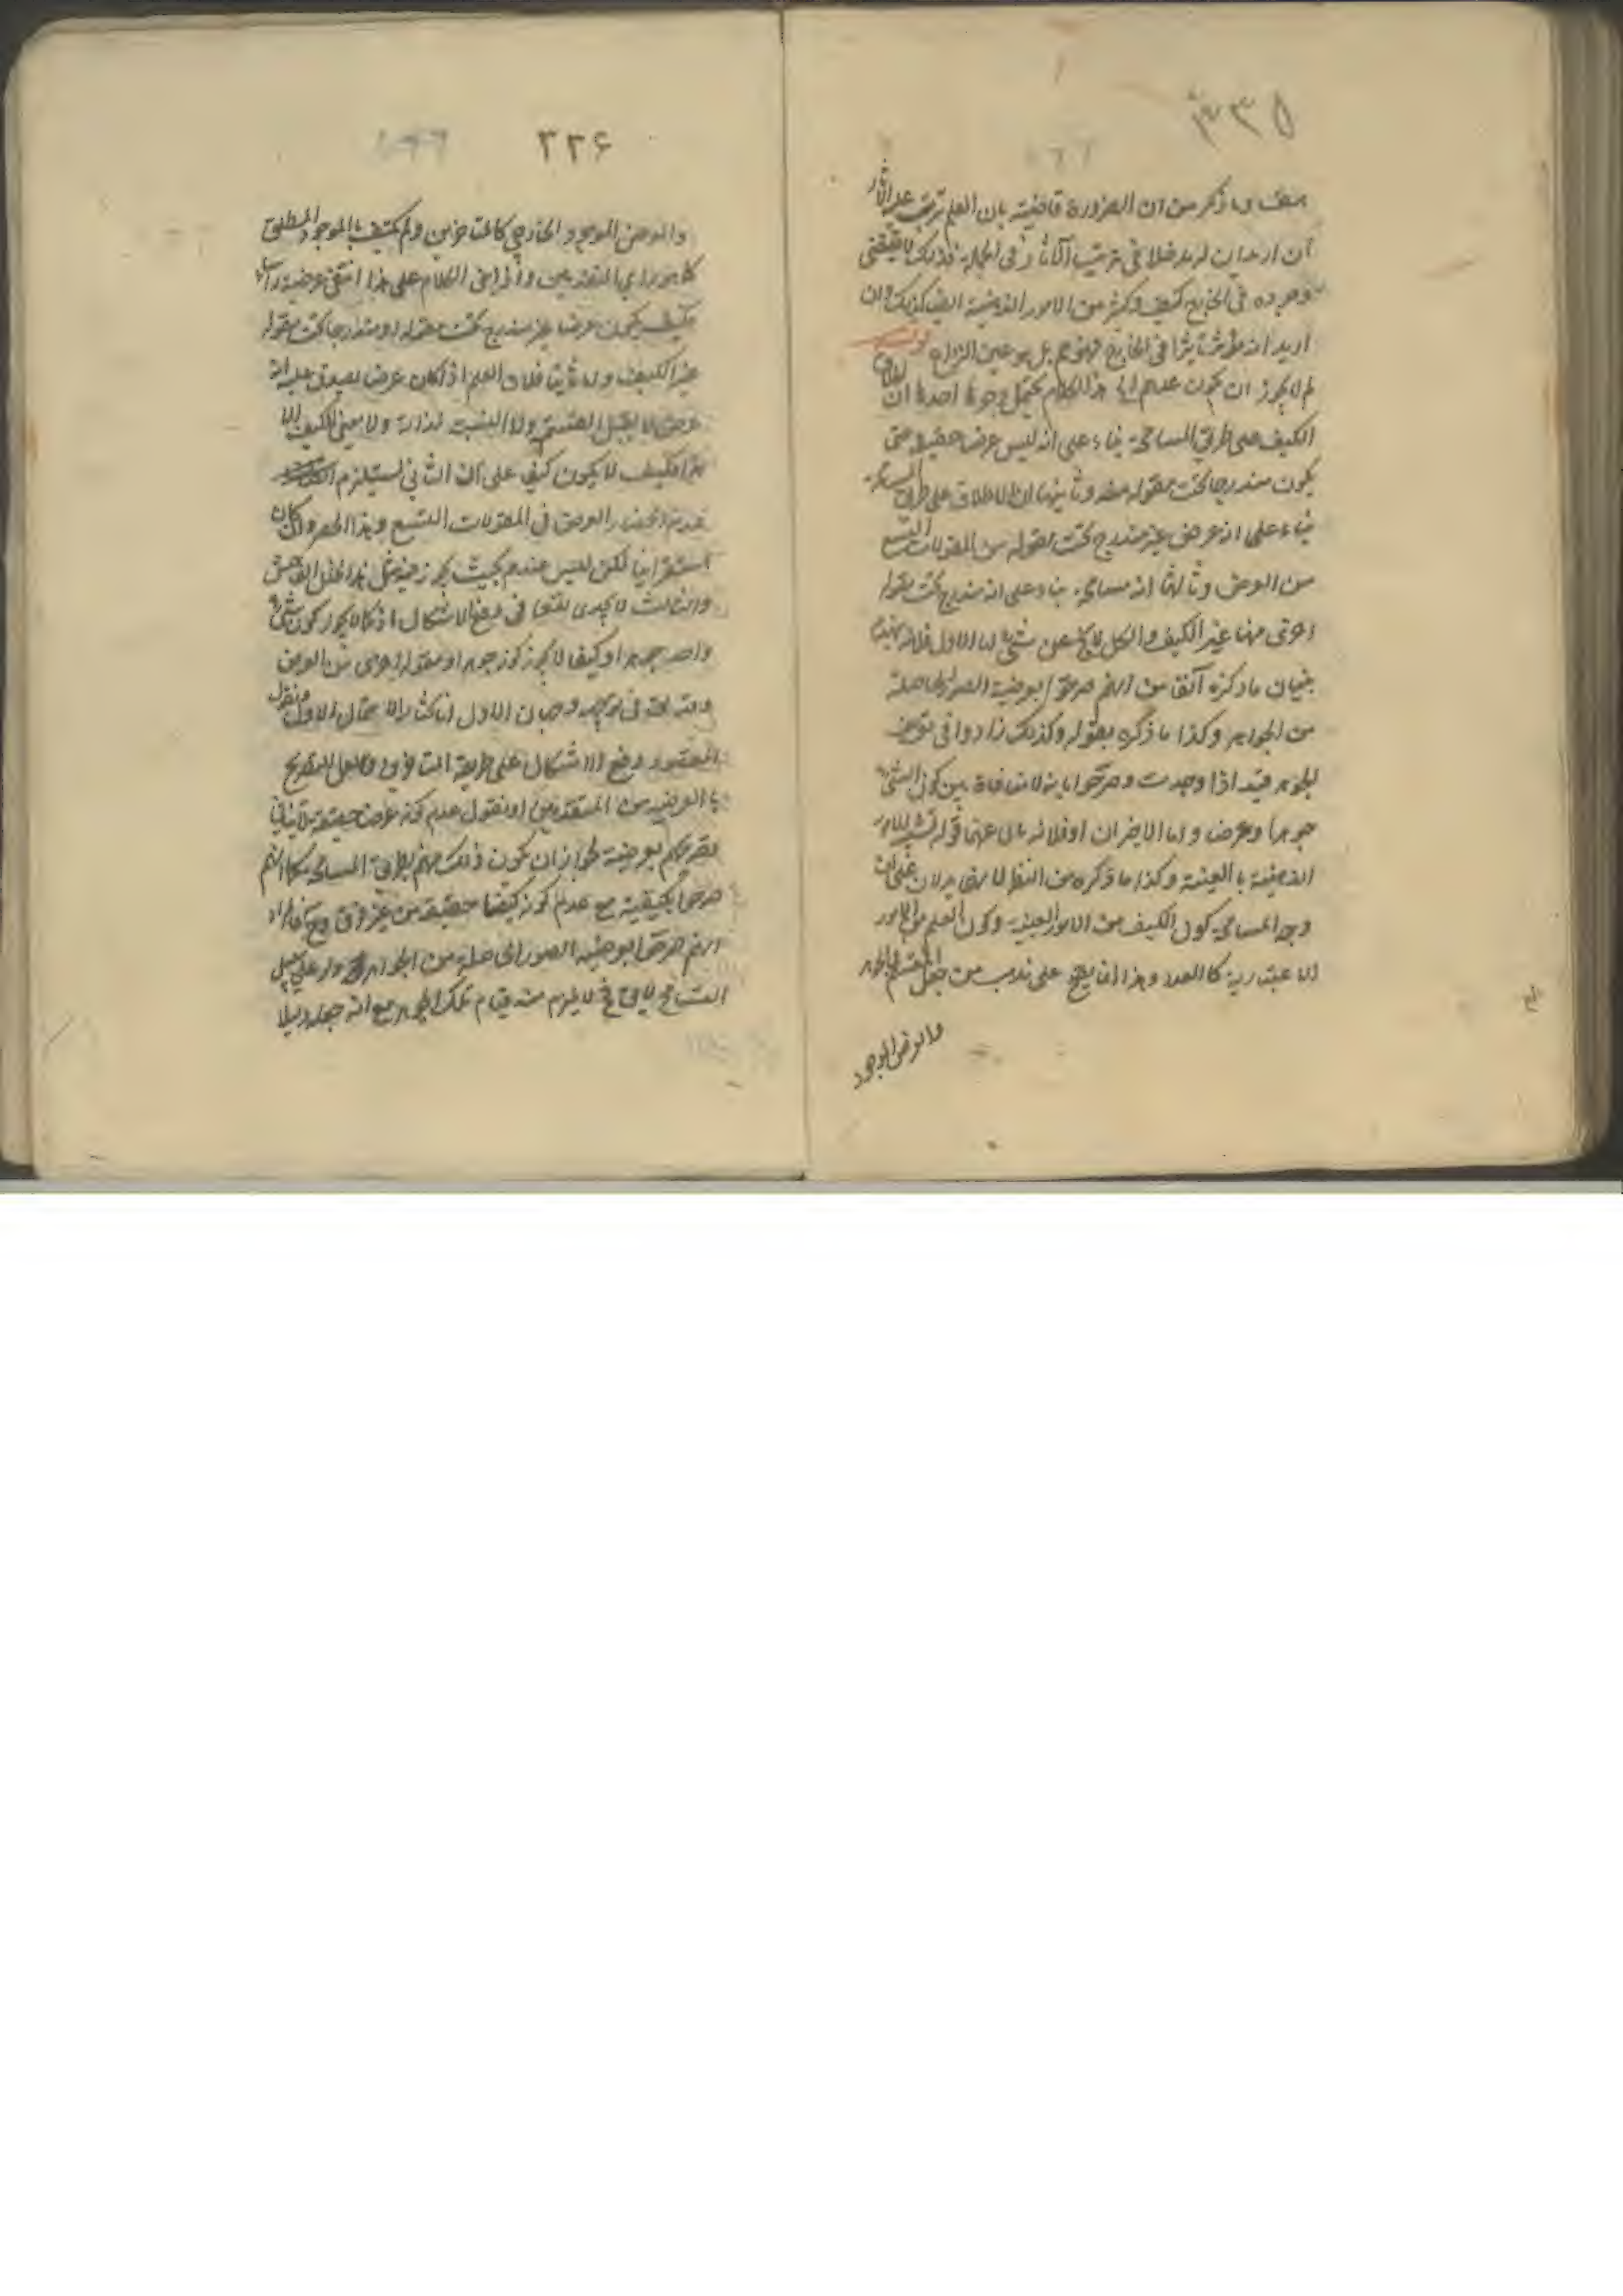 ٢٣٥
وما ذكر من ان الضرورة قاضية بان العلم يترتب عليه الآثار
ان اريد ان له مدخلا فى ترتيب الآثار فى الجملة فذلك لا يقتضى
وجوده فى الخارج كيف وكثير من الامور الذهنية ايضا كذلك وان
اريد انه مؤثر تأثيرا فى الخارج فهو مم بل هو عين النزاع قوله
لم لا يجوز ان يكون عدهم الخ هذا الكلام يحتمل وجوها احدها ان اطلاق
الكيف على طريق المسامحة بناء على انه ليس عرض حقيقة حتى
يكون مندرجا تحت مقولة منه وثانيها ان الاطلاق على طريق المسامحة
بناء على انه عرض غير مندرج تحت مقولة من المقولات التسع
من العرض وثالثها انه مسامحة بناء على انه مندرج تحت مقولة
اخرى منها غير الكيف والكل لا يخ عن شئ اما الاول فلانه
ما ذكره آنفا من انهم صرحوا بعرضية الصور الحاصلة
من الجواهر وكذا ما ذكره بقوله وكذلك زادوا فى تعريف
الجوهر قيد اذا وجدت وصرحوا بانه لا منافاة بين كون الشئ
جوهرا وعرضا واما الاخيران اوفلانه
الذهنية بالعينية وكذا ما ذكره من النظر لان على ان
وجه المسامحة كون الكيف من الامور العينية وكون العلم من الامور
الاعتبارية كالعدد وهذا انما يصح على مذهب من جعل المقسم للجوهر
والعرض الموجود
٢٢۶
والعرض الموجود الخارجى كالمتأخرين ولم يكتف بالموجود المطلق
كما هو راى المتقدمين واذا بنى الكلام على هذا انتفى عرضيته راسا
فكيف يكون عرضا غير مندرج تحت مقولة او مندرجا تحت مقولة
غير الكيف واما ثانيا فلان العلم اذا كان عرضا يصدق عليه انه
عرض لا يقبل القسمة ولا النسبة لذاته ولا معنى للكيف الا
هذا فكيف لا يكون كيفا على ان الثانى يستلزم
عدم انحصار العرض فى المقولات التسع وهذا الحصر وان كان
استقرائيا لكن ليس عندهم بحيث يجوز فيه مثل هذا الخلل الفاحش
والثالث لا يجدى نفعا فى دفع الاشكال اذ كما لا يجوز كون شئ
واحد جوهرا وكيفا لا يجوز كونه جوهرا ومقولة اخرى من العرض
فى توجيه وجهان الاول انا نختار الاحتمال الاول ونقول
المقصود دفع الاشكال على طريقة المتأخرين والقول للتصريح
بالعرضية من المتقدمين او نقول عدم كونه عرضا حقيقة لا ينافى
تصريحهم بعرضيته لجواز ان يكون ذلك منهم بطريق المسامحة كما انهم
صرحوا بكيفيته مع عدم كونه كيفا حقيقة من غير فرق
انهم صرحوا بعرضية الصور الحاصلة من الجواهر ولو على سبيل
التسامح لا يلزم منه قيام تلك الجواهر مع انه جعله دليلا